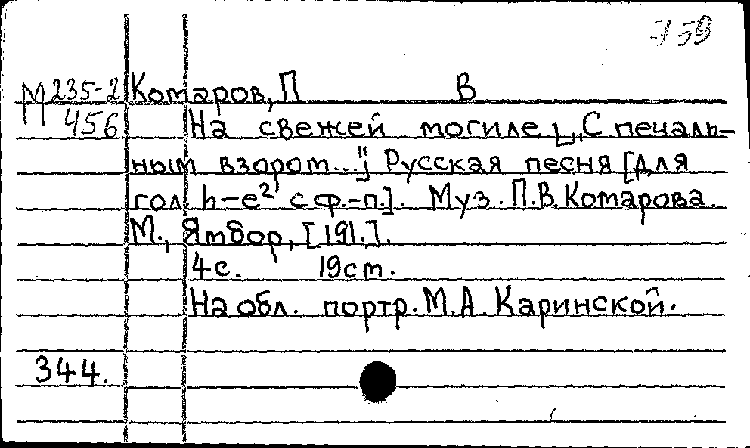 -159
М 235-2 Комаров, П В
456 На свежей могиле [„С печаль-
ным взором..."] Русская песня [для
гол h-e² с ф.-п.]. Муз. П.В. Комарова.
М., Ямбор, [191.].
4с. 19см.
На обл. портр. М.А. Каринской.
344.